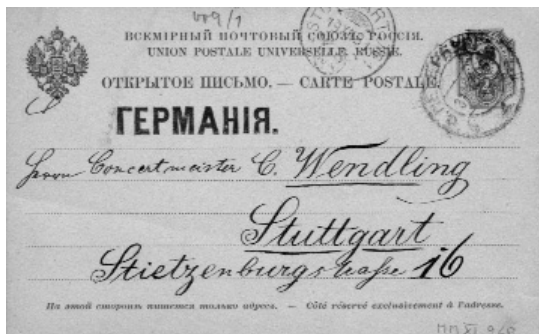 ВСЕМІРНЫЙ ПОЧТОВЫЙ СОЮЗЪ. РОССІЯ.
UNION POSTALE UNIVERSELLE. RUSSIE.
ОТКРЫТОЕ ПИСЬМО. — CARTE POSTALE.
ГЕРМАНІЯ.
Herrn Concertmeister C. Wendling
Stuttgart
Stietzenburgstrasse 16
На этой сторонѣ пишется только адресъ. — Côté réservé exclusivement à l'adresse.